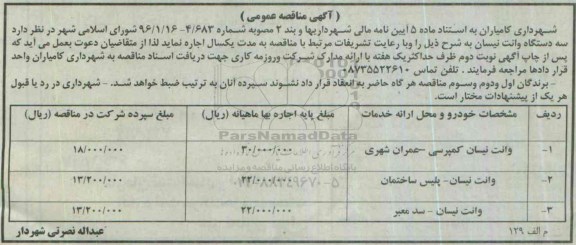 ( آگهی مناقصه عمومی )
شهرداری کامیاران به استناد ماده ۵ آیین نامه مالی شهرداریها و بند ۲ مصوبه شماره ۴/۶۸۳-۹۶/۱/۱۶ شورای اسلامی شهر در نظر دارد
سه دستگاه وانت نیسان به شرح ذیل را وبا رعایت تشریفات مرتبط با مناقصه به مدت یکسال اجاره نماید لذا از متقاضیان دعوت بعمل می آید که
پس از چاپ آگهی نوبت دوم ظرف حداکثریک هفته با ارائه مدارک شرکت ورزومه کاری جهت دریافت اسناد مناقصه به شهرداری کامیاران واحد
قرار دادها مراجعه فرمایند . تلفن تماس ۰۸۷۳۵۵۲۲۶۱۰
- برندگان اول ودوم وسوم مناقصه هر گاه حاضر به انعقاد قرار داد نشوند سپرده آنان به ترتیب ضبط خواهد شد. - شهرداری در رد یا قبول
هر یک از پیشنهادات مختار است.
ردیف مشخصات خودرو و محل ارائه خدمات مبلغ پایه اجاره بها ماهیانه (ریال) مبلغ سپرده شرکت در مناقصه (ریال)
۱- وانت نیسان کمپرسی -عمران شهری ۳۰/۰۰۰/۰۰۰ ۱۸/۰۰۰/۰۰۰
۲- وانت نیسان- پلیس ساختمان ۲۲/۰۰۰/۰۰۰ ۱۳/۲۰۰/۰۰۰
۳- وانت نیسان - سد معبر ۲۲/۰۰۰/۰۰۰ ۱۳/۲۰۰/۰۰۰
م الف ۱۲۹ عبداله نصرتی شهردار
ParsNamadData
پایگاه اطلاع رسانی مناقصه و مزایده